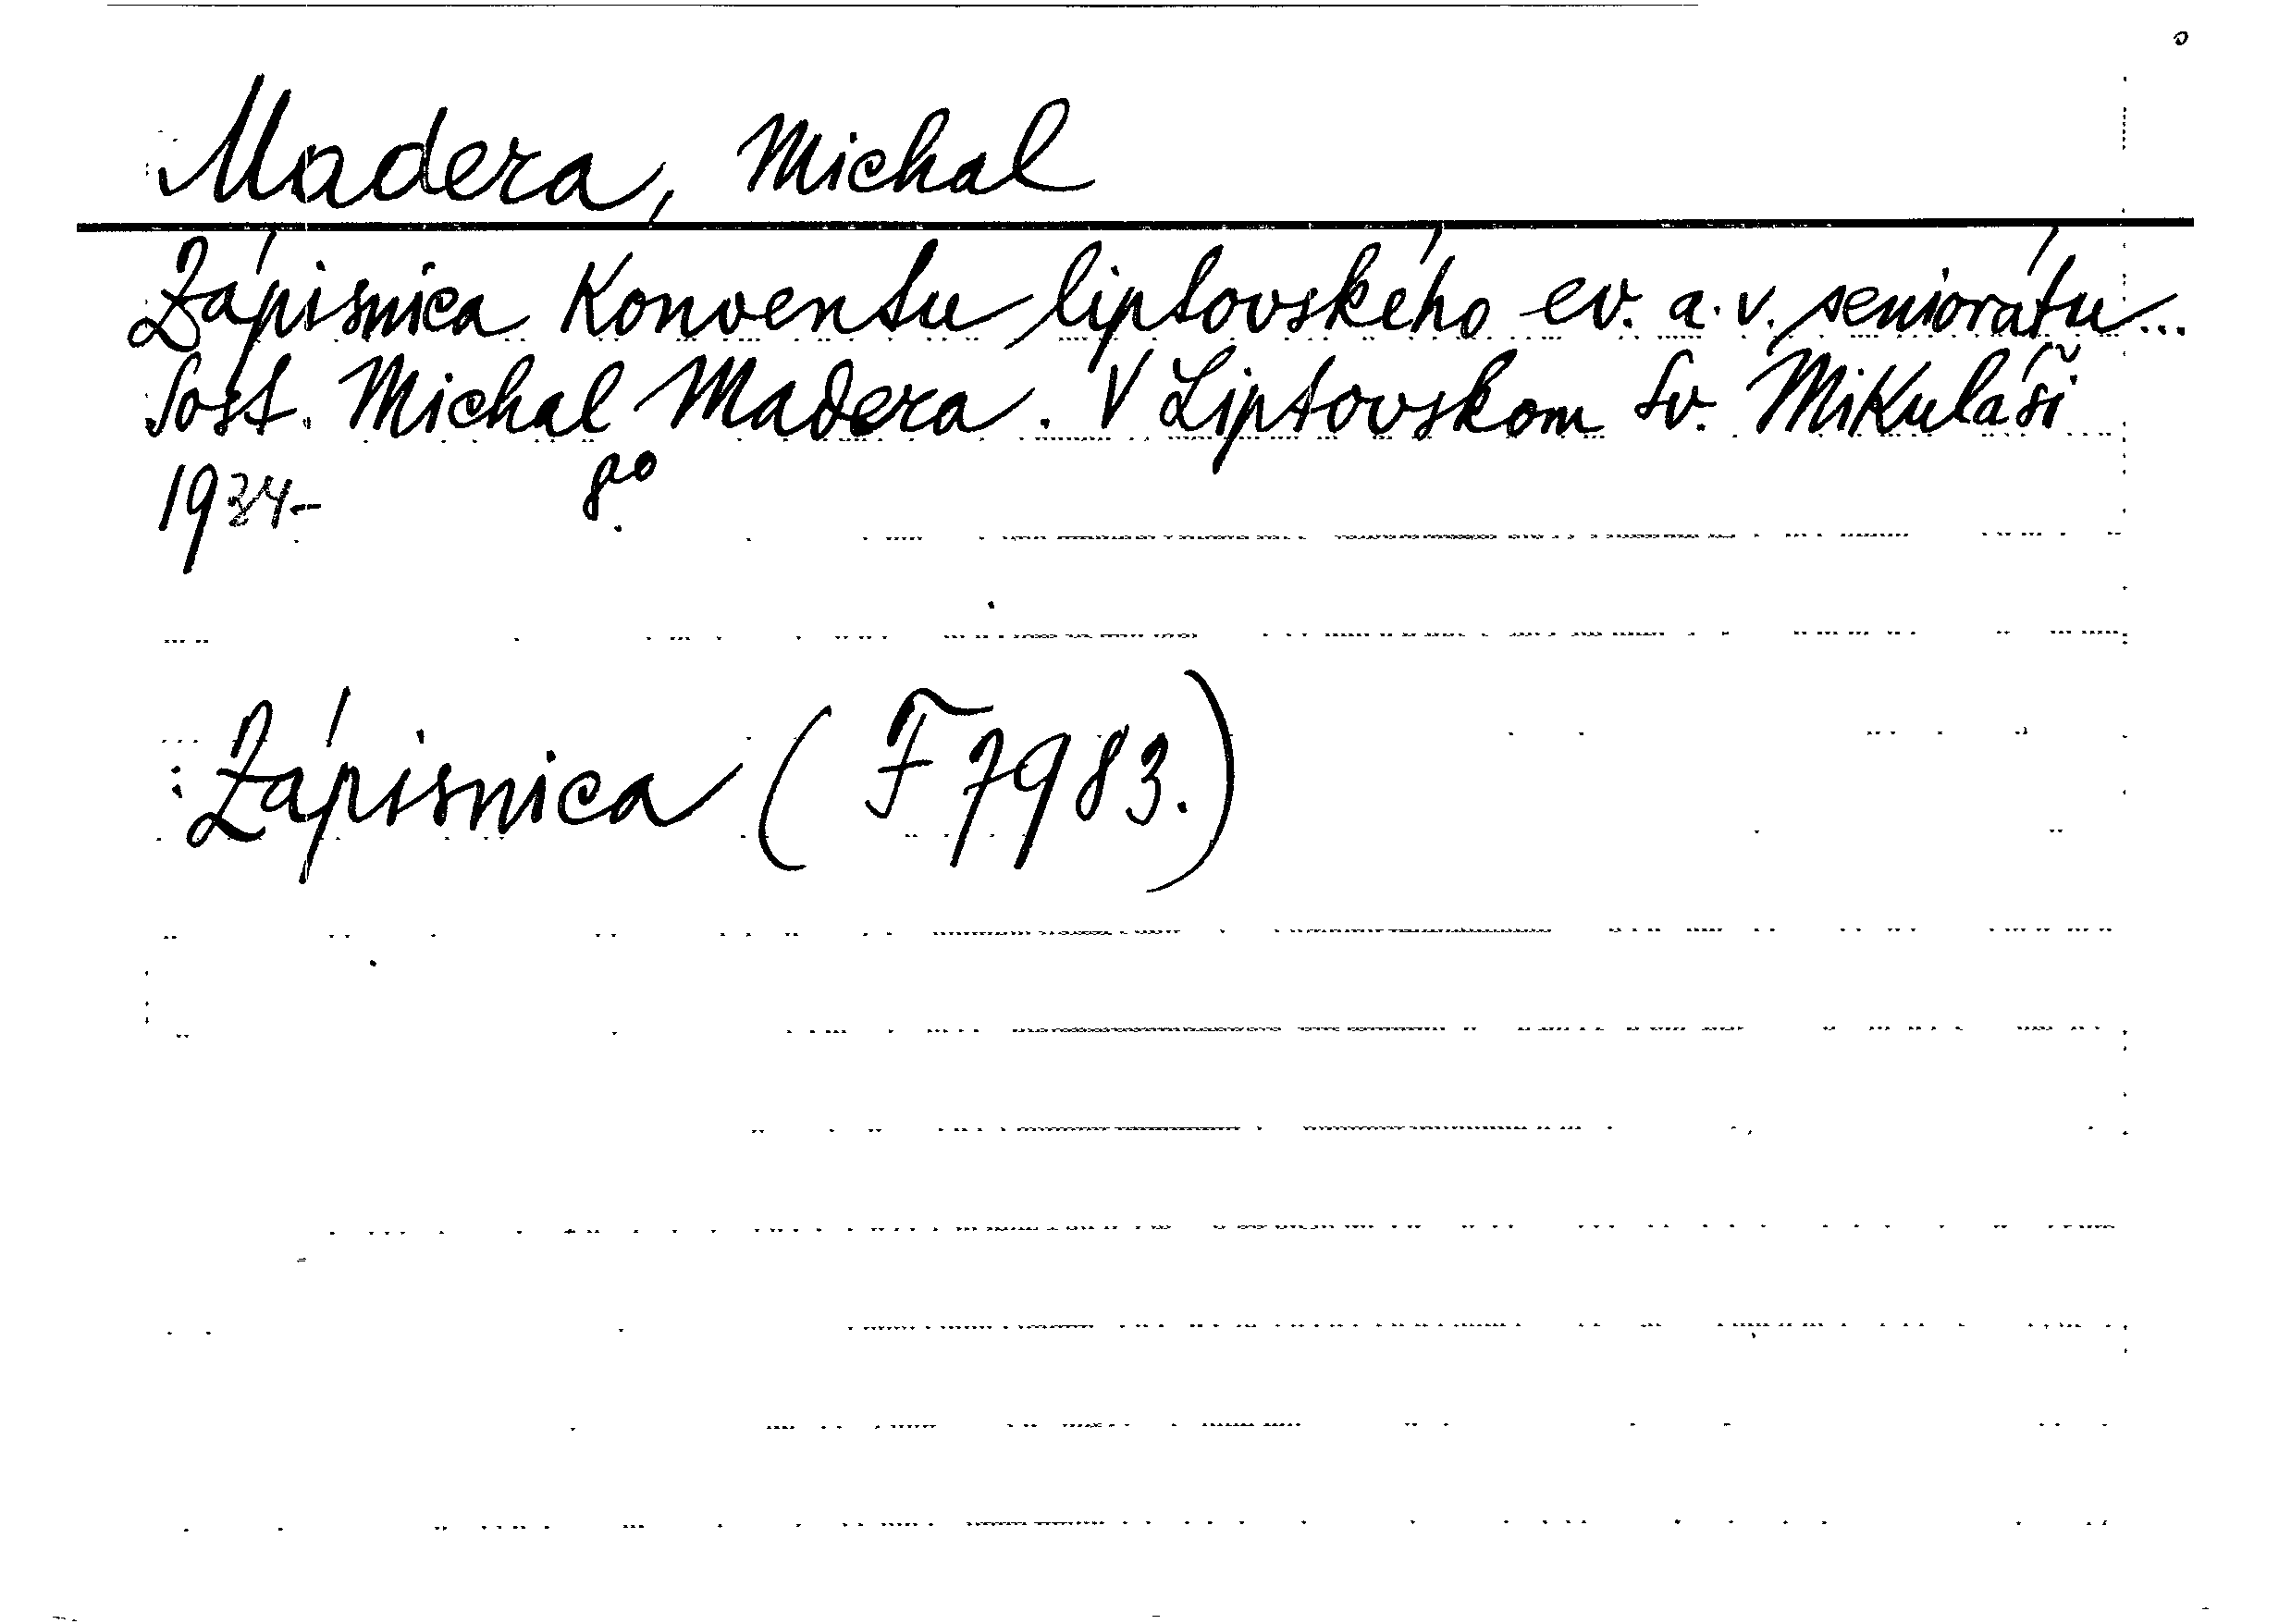 Madera, Michal
Zápisnica Konventu liptovského ev. a. v. seniorátu...
Sost. Michal Madera. V Liptovskom Sv. Mikuláši
1934- 8°
Zápisnica ( F 7983.)